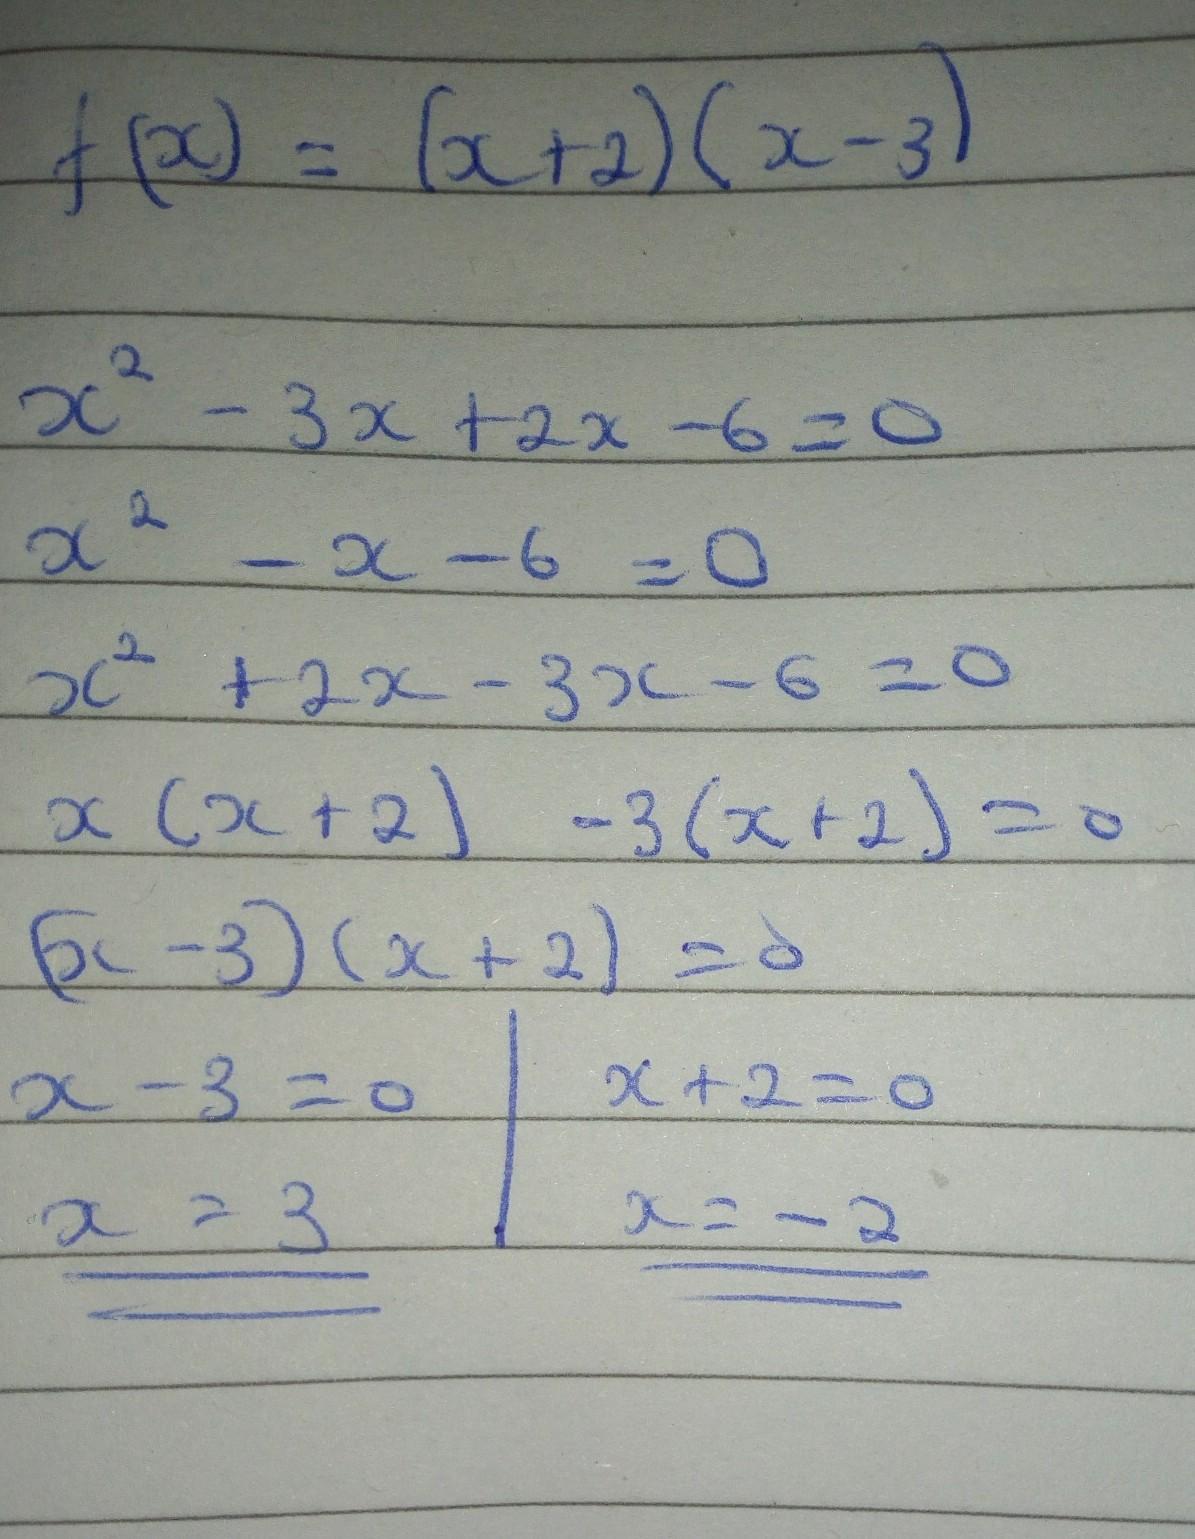 f(x) = (x+2)(x-3)
x² - 3x +2x -6=0
x² - x -6 =0
x² +2x -3x -6 =0
x (x+2) -3(x+2)=0
(x -3)(x+2) =0
x -3 =0 | x+2=0
x = 3 | x= -2